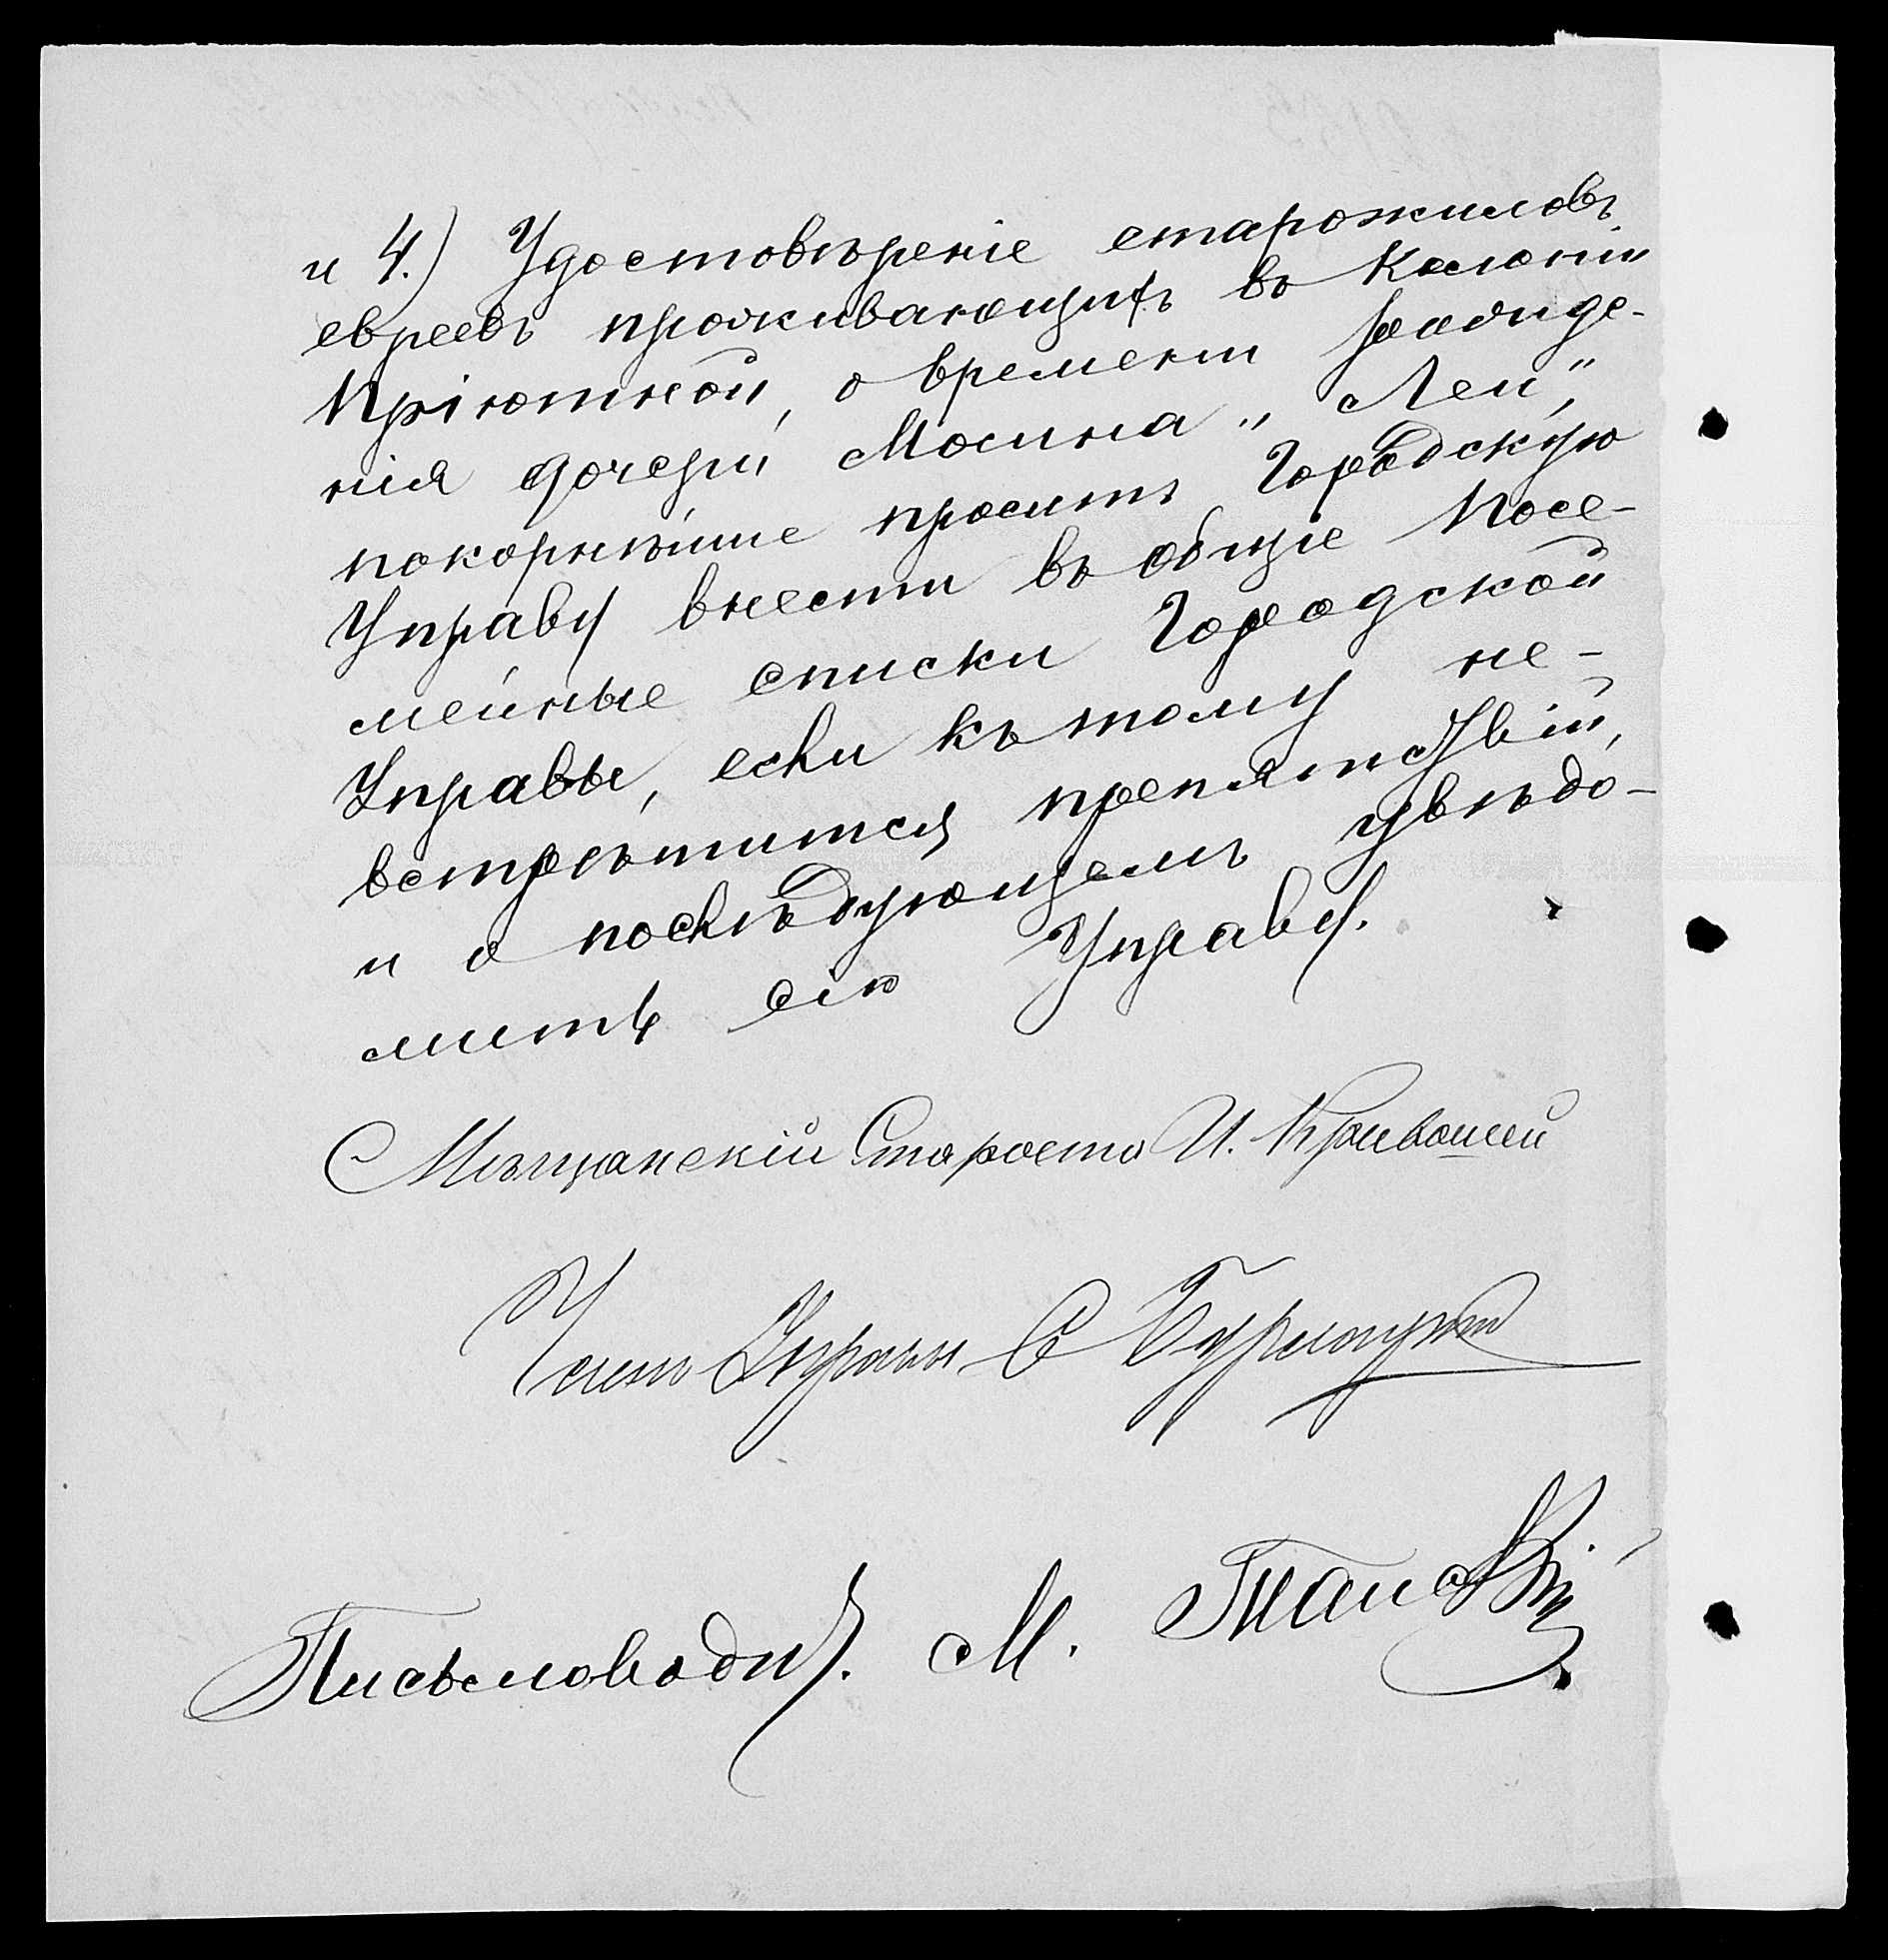 и 4.) Удостовѣреніе старожиловъ
евреевъ проживающихъ въ Колоніи
Пріютной, о времени рожде-
нія дочери Мосина „Леи",
покорнѣйше проситъ Городскую
Управу внести въ общіе Посе-
мейные списки Городской
Управы, если къ тому не-
встрѣтится препятствій,
и о послѣдующемъ увѣдо-
мить сію Управу.
Мѣщанскій Староста И.
Членъ Управы С
Письмоводит. М.